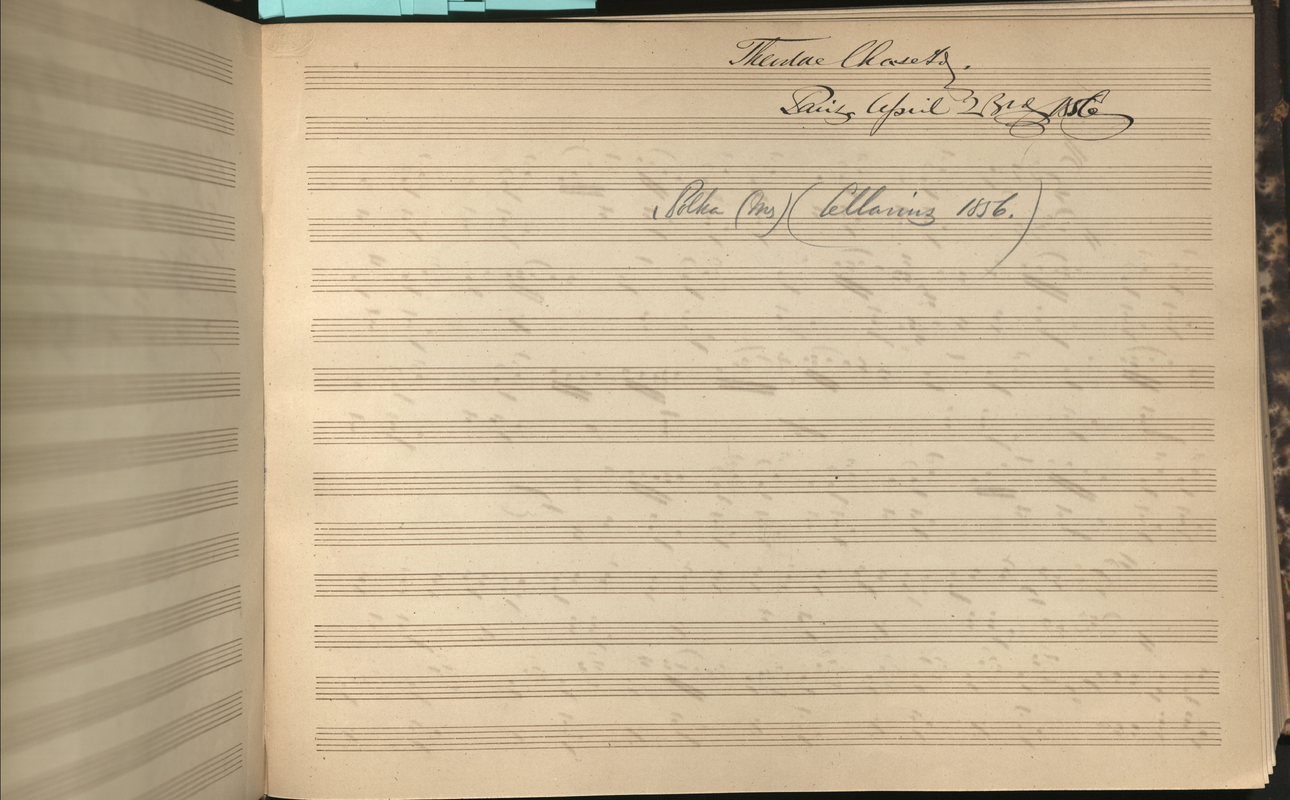 Theodore Chase
Paris, April 23rd, 1856
Polka (Ms) (Cellarius 1856.)